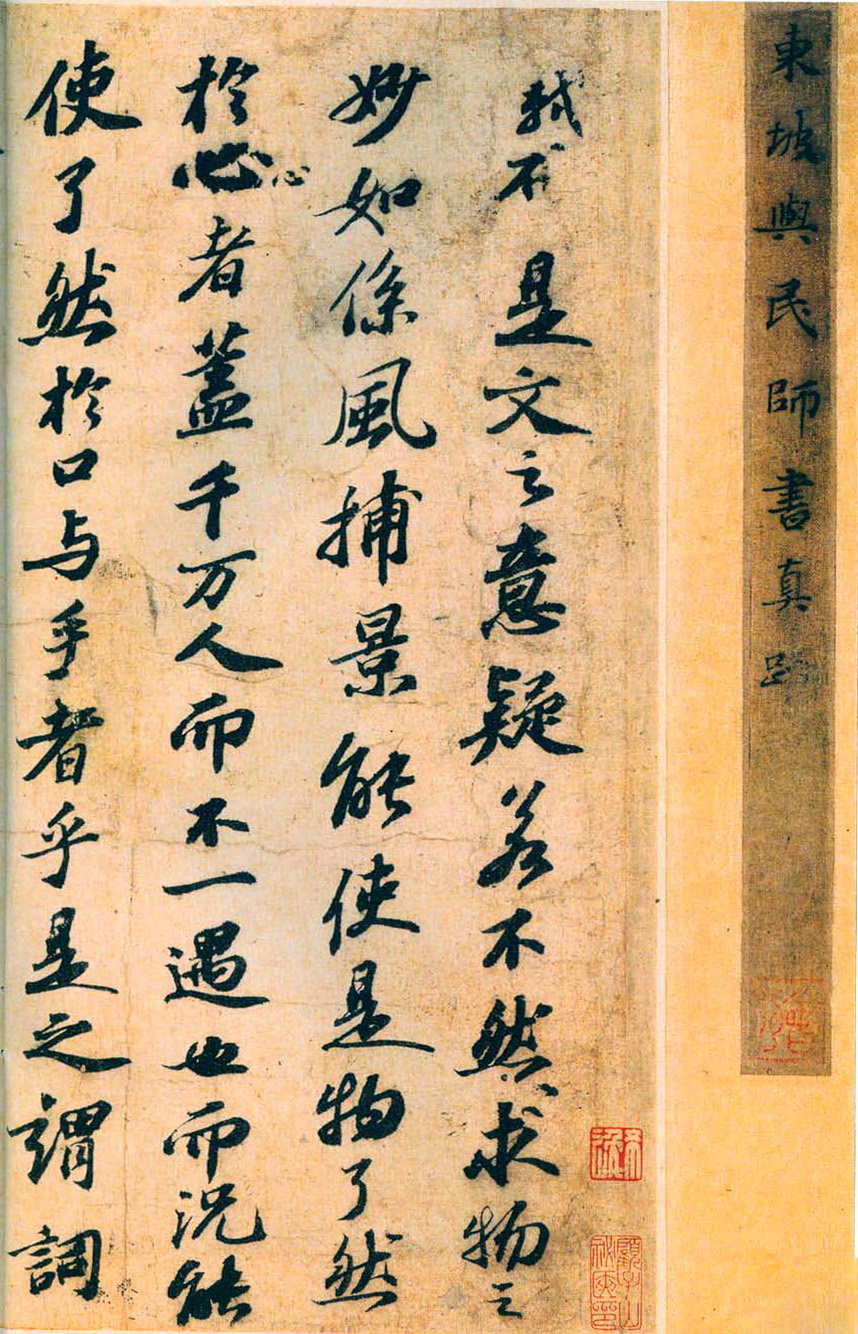 東坡與民師書真跡
軾不是文之意疑若不然求物之
妙如係風捕景能使是物了然
於心心者蓋千万人而不一遇也而況能
使了然於口与手者乎是之謂詞